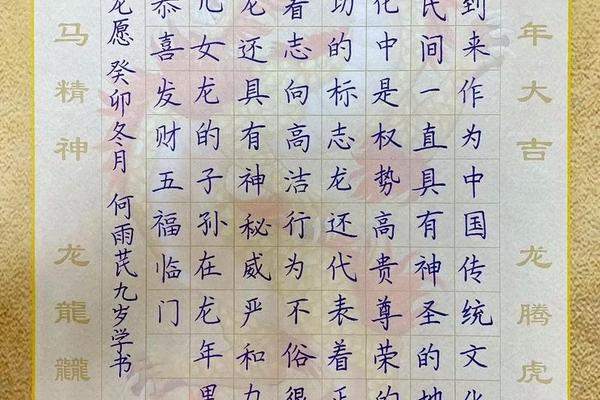 年大吉 龙腾虎
到来作为中国传统文化
民间一直具有神圣的地
化中是权势高贵尊荣的
功的标志龙还代表着正
着志向高洁行为不俗很
龙还具有神秘威严和力
儿女龙的子孙在龙年里
恭喜发财五福临门
龙愿 癸卯冬月 何雨芪九岁学书
马精神 龙龍